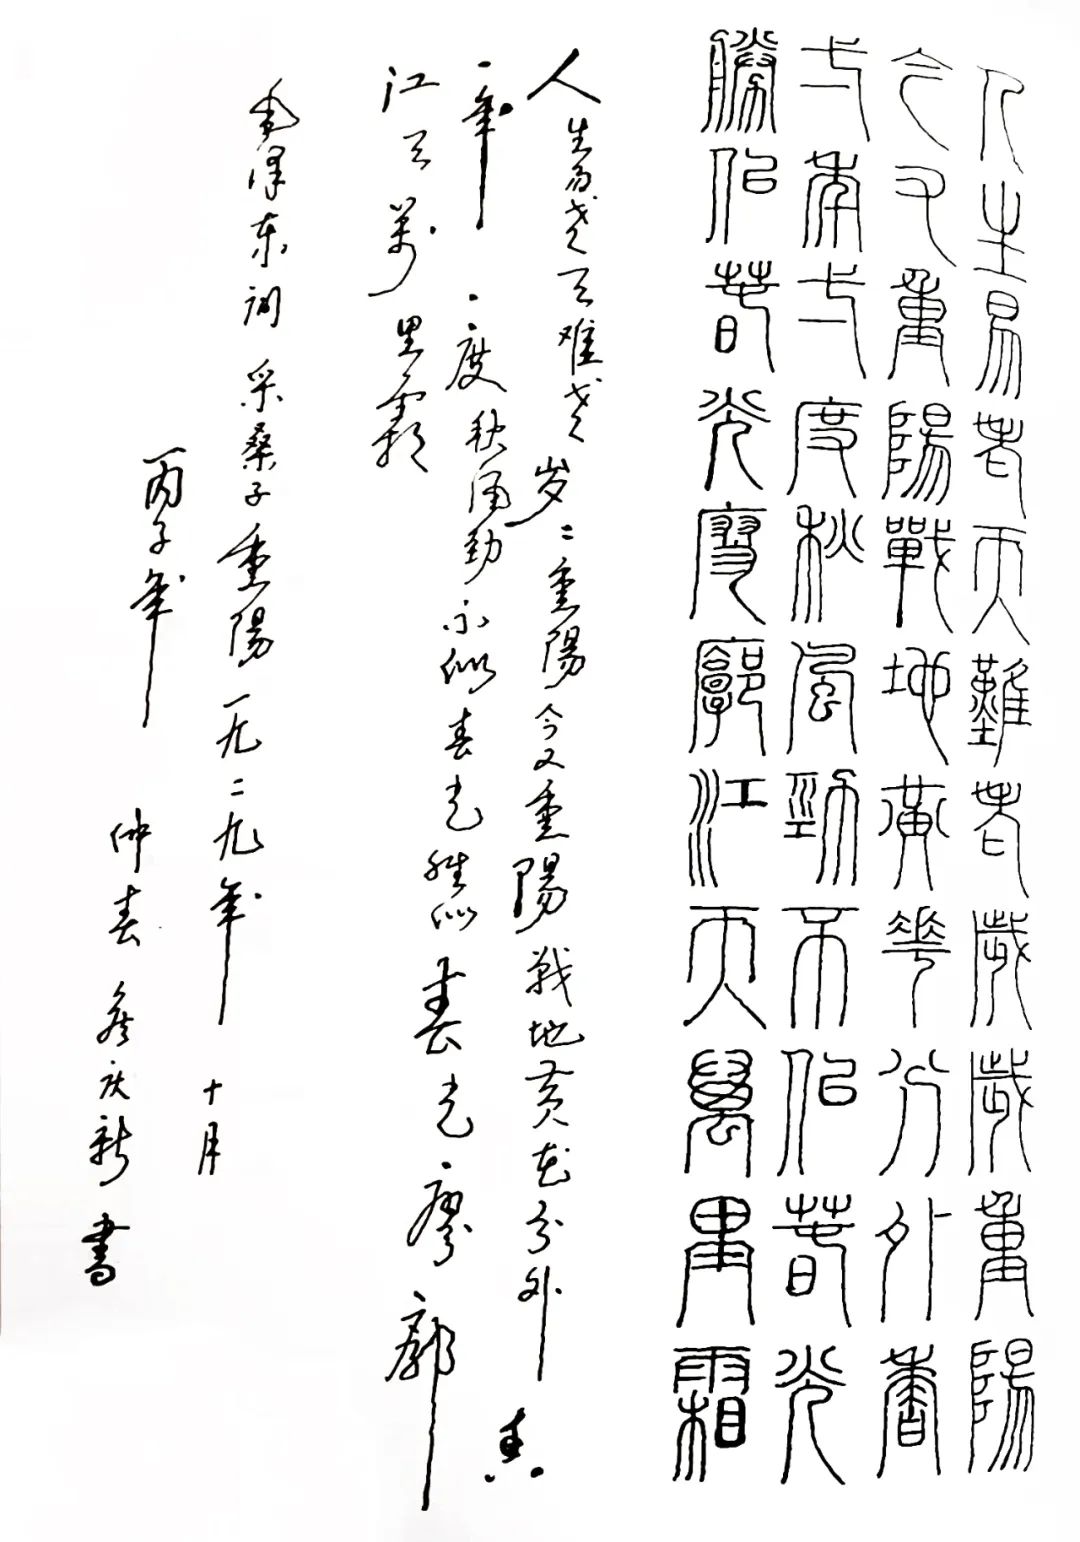 人生易老天難老歲歲重陽
今又重陽戰地黃華分外香
弌年弌度秋風勁不似春光
勝似春光寥廓江天萬里霜
人生易老天难老岁〻重陽今又重陽戰地黄花分外香
一年一度秋风劲不似春光胜似春光廖廓
江天萬里霜
毛泽东词 采桑子重陽一九二九年十月
丙子年 仲春 庆新書